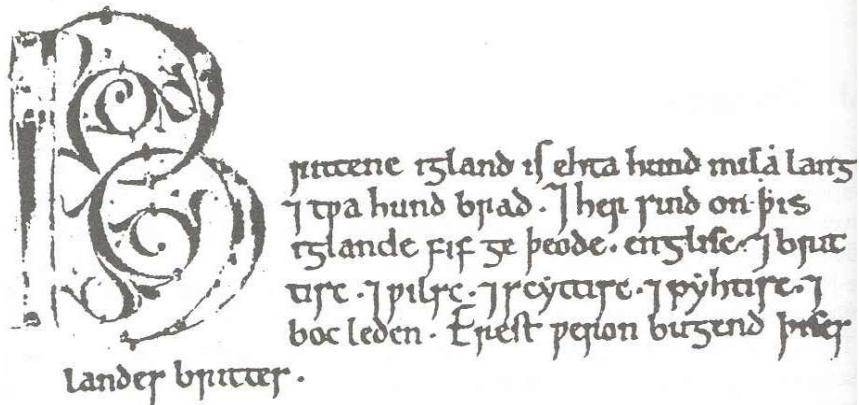 Brittene igland is ehta hund mila lang
⁊ tƿa hund brad. ⁊ her sind on þis
iglande fif ge þeode. englisc. ⁊ brit
tisc. ⁊ ƿilsc. ⁊ scyttisc. ⁊ pyhtisc. ⁊
boc leden. Erest ƿeron bugend þises
landes brittes.